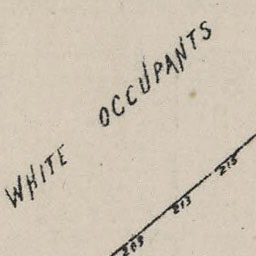 WHITE OCCUPANTS
209
213
215